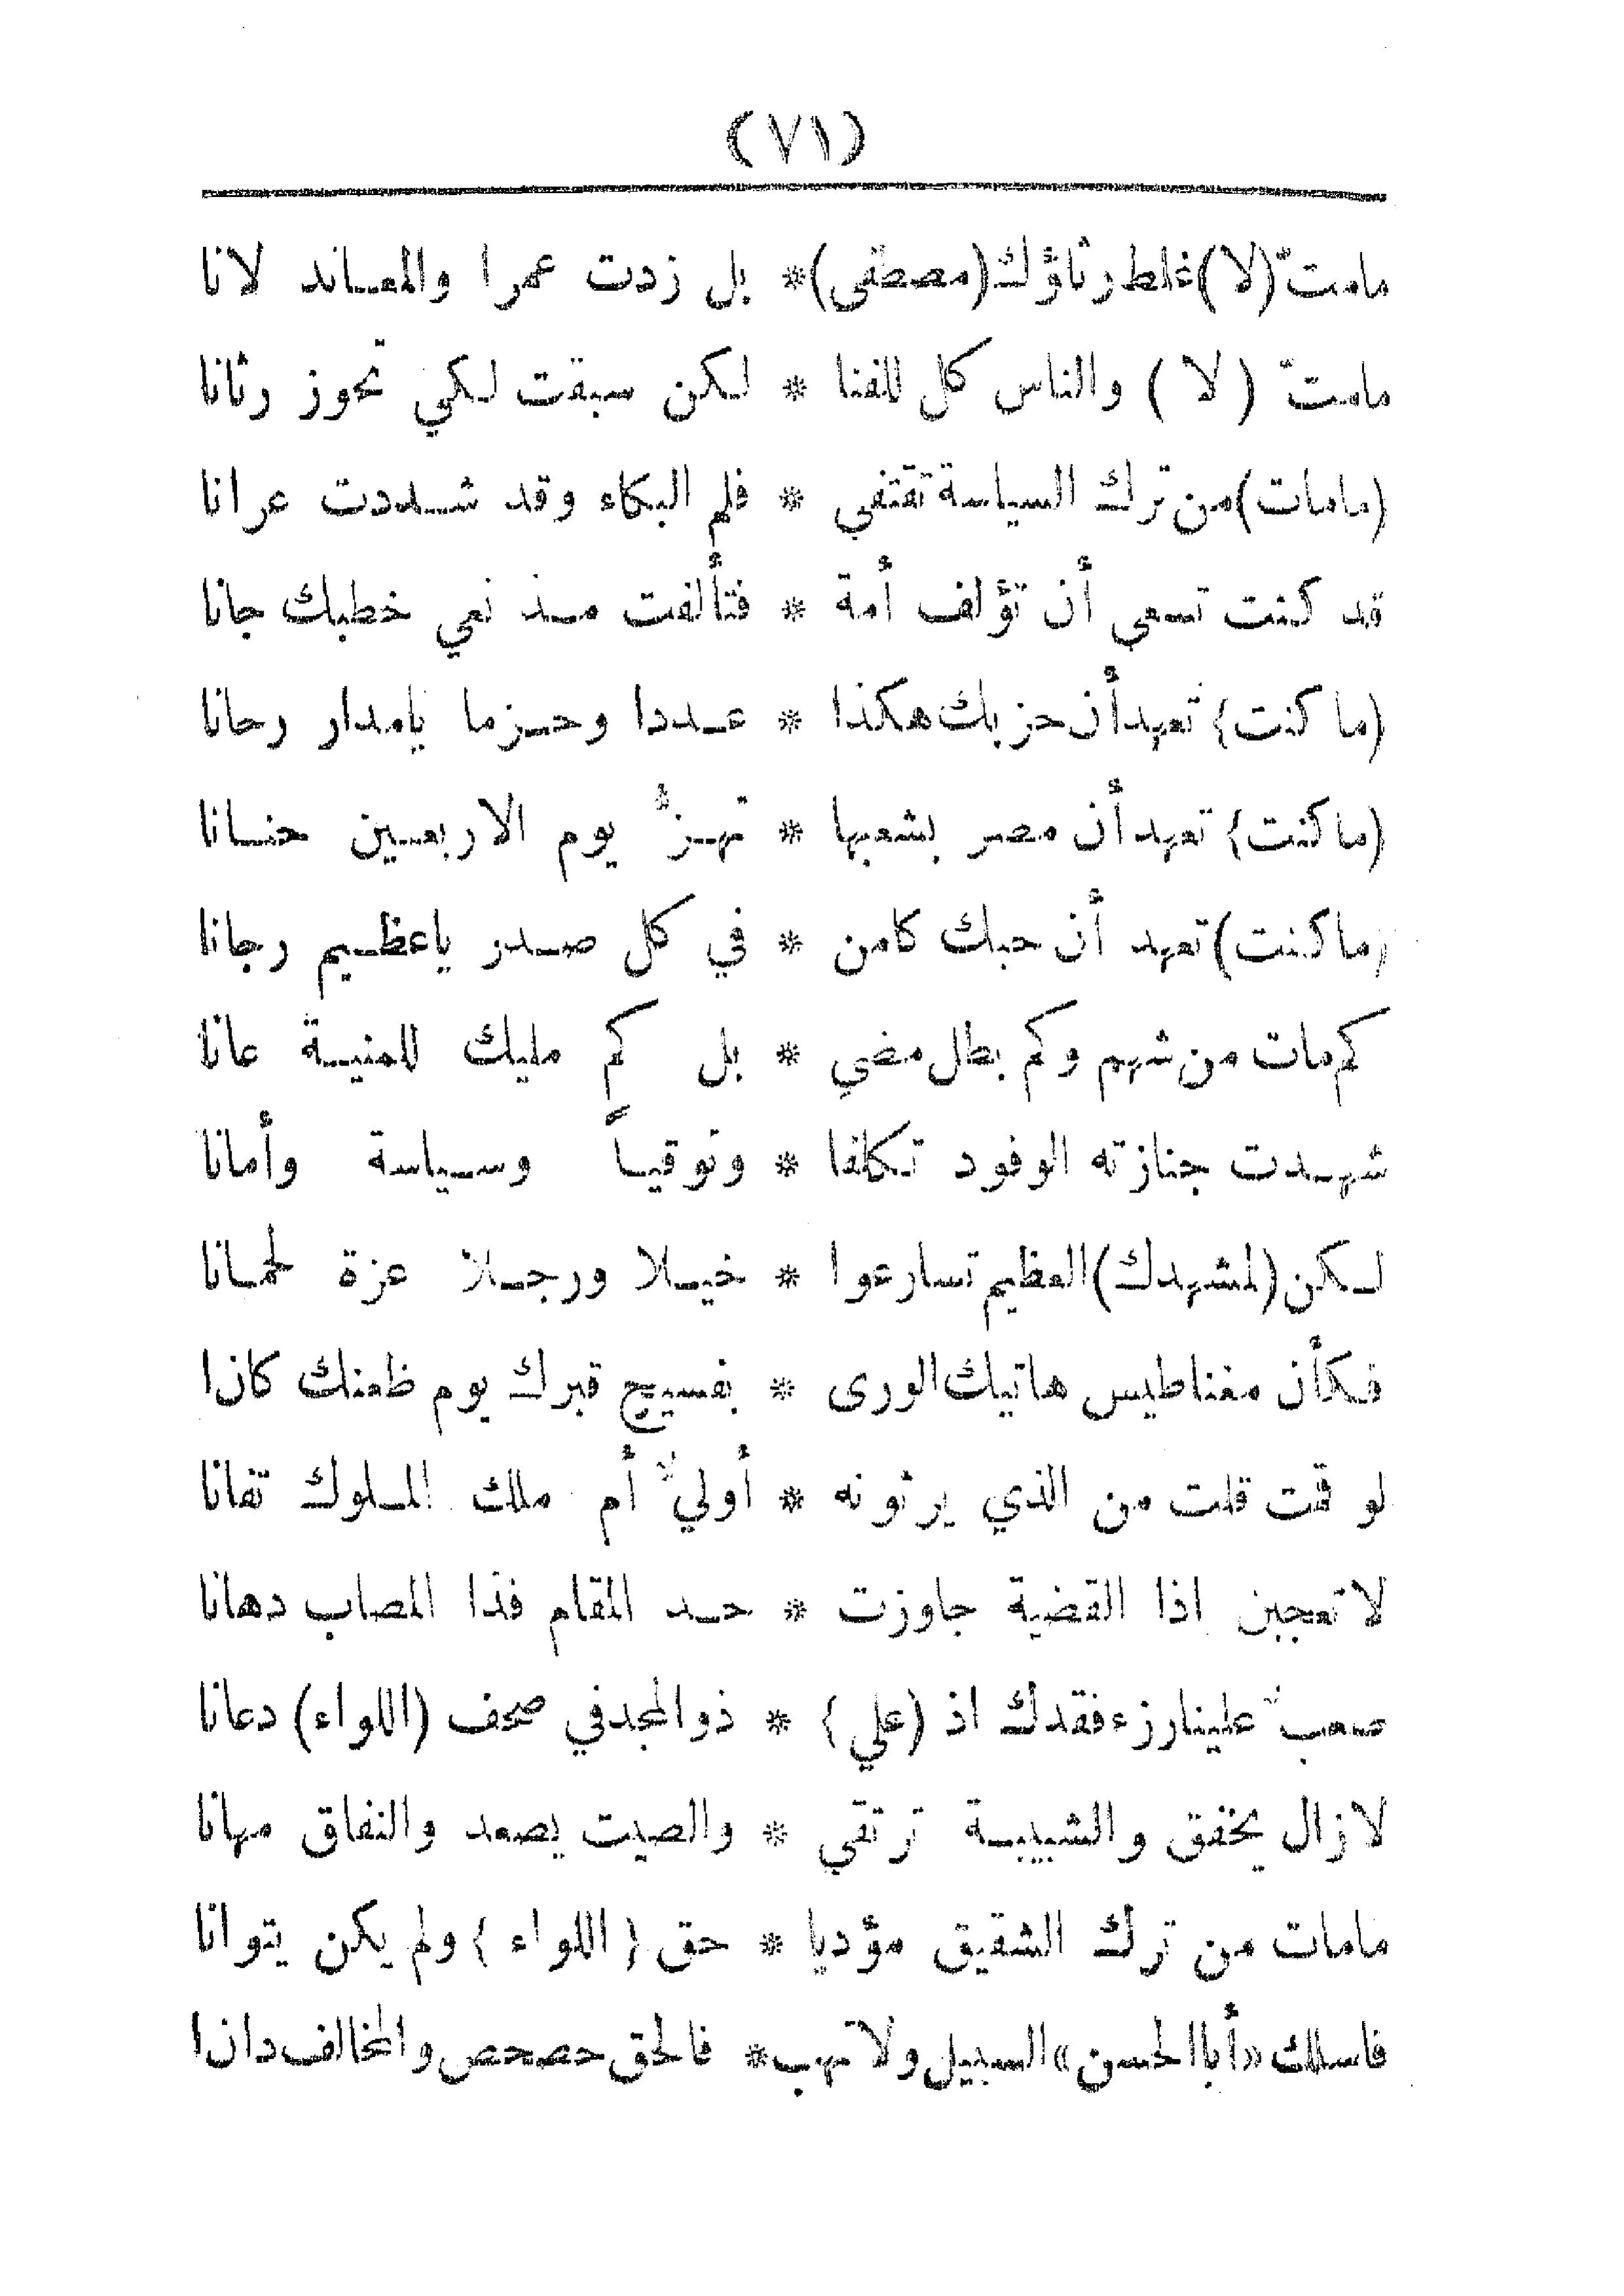 (٧١)
مامتّ (لا) غلط رثاؤك (مصطفى) * بل زدت عمرا والمعاند لانا
مامتّ (لا) والناس كل للفنا * لكن سبقت لكي تحوز رثانا
(مامات) من ترك السياسة تقتفي * فلم البكاء وقد شددت عرانا
قد كنت تسعى أن تؤلف أمة * فتألفت مذ نعي خطبك جانا
(ما كنت) تعهد أن حزبك هكذا * عددا وحزما يامدار رحانا
(ما كنت) تعهد أن مصر بشعبها * تهزّ يوم الاربعين حنانا
(ما كنت) تعهد أن حبك كامن * في كل صدر ياعظيم رجانا
كم مات من شهم وكم بطل مضي * بل كم مليك للمنية عانا
شهدت جنازته الوفود تكلفا * وتوقياً وسياسة وأمانا
لكن (لمشهدك) العظيم تسارعوا * خيلا ورجلا عزة لحمانا
فكأن مغناطيس هاتيك الورى * بفسيح قبرك يوم ظعنك كانا
لو قمت قلت من الذي يرثونه * أوليّ أم ملك الملوك تفانا
لا تعجبن اذا القضية جاوزت * حد المقام فذا المصاب دهانا
صعبٌ علينا رزء فقدك اذ (علي) * ذو المجد في صحف (اللواء) دعانا
لازال يخفق والشبيبة ترتقي * والصيت يصعد والنفاق مهانا
مامات من ترك الشقيق مؤديا * حق (اللواء) ولم يكن يتوانا
فاسلك «أبا الحسن» السبيل ولا تهب * فالحق حصحص والمخالف دانا